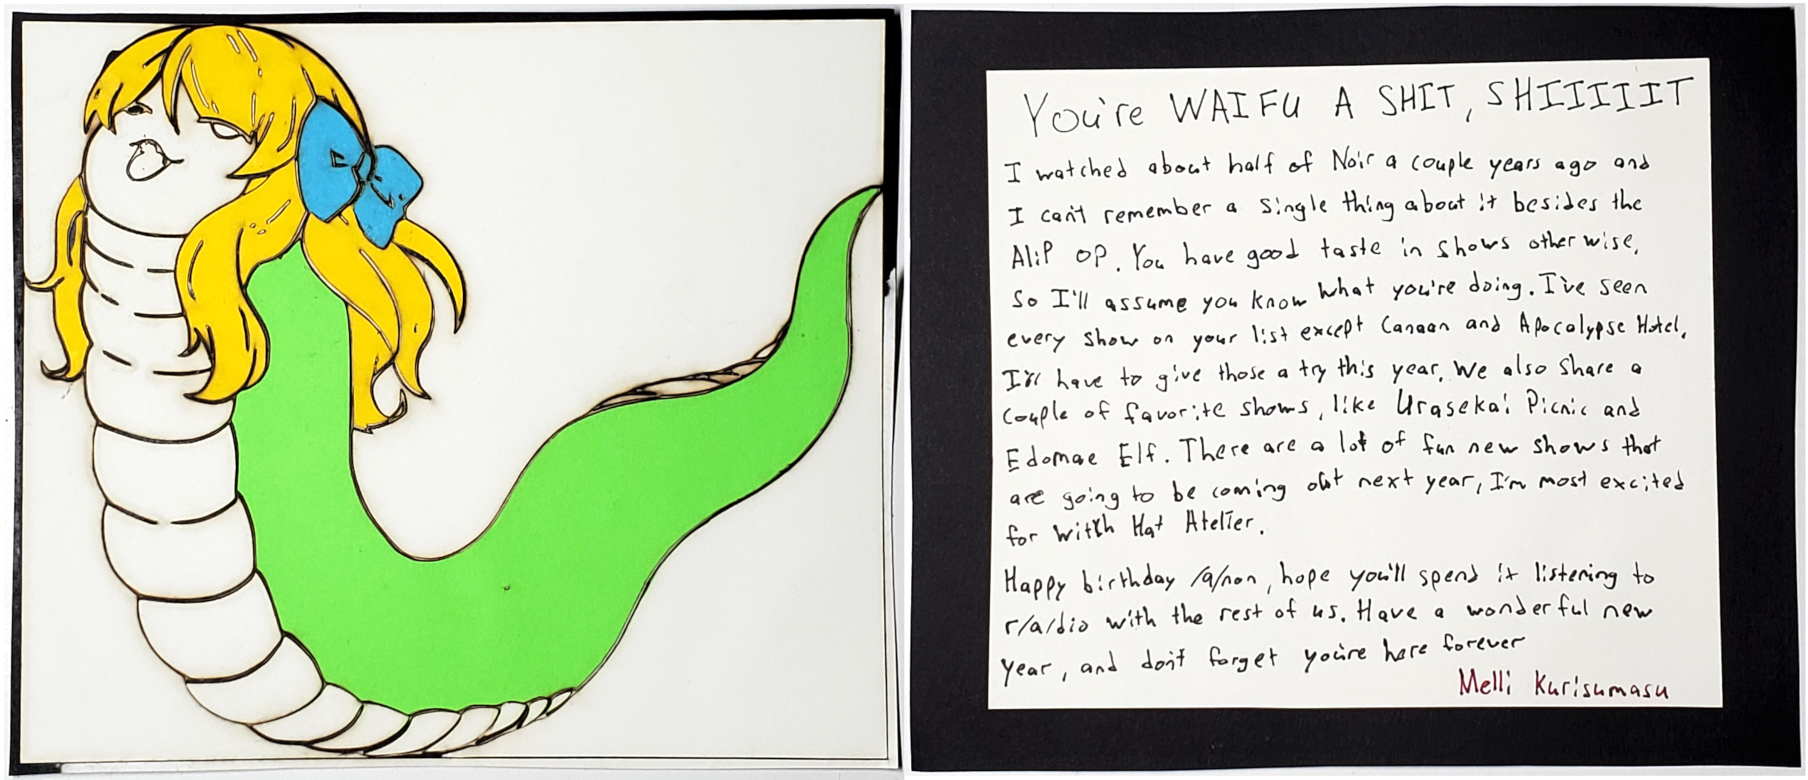 You're WAIFU A SHIT, SHIIIIIT
I watched about half of Noir a couple years ago and
I can't remember a single thing about it besides the
AliP OP. You have good taste in shows otherwise,
So I'll assume you know what you're doing. I've seen
every show on your list except Canaan and Apocalypse Hotel.
I'll have to give those a try this year. We also share a
couple of favorite shows, like Urasekai Picnic and
Edomae Elf. There are a lot of fun new shows that
are going to be coming out next year, I'm most excited
for Witch Hat Atelier.
Happy birthday /a/non, hope you'll spend it listening to
r/a/dio with the rest of us. Have a wonderful new
year, and don't forget you're here forever
Melli Kurisumasu